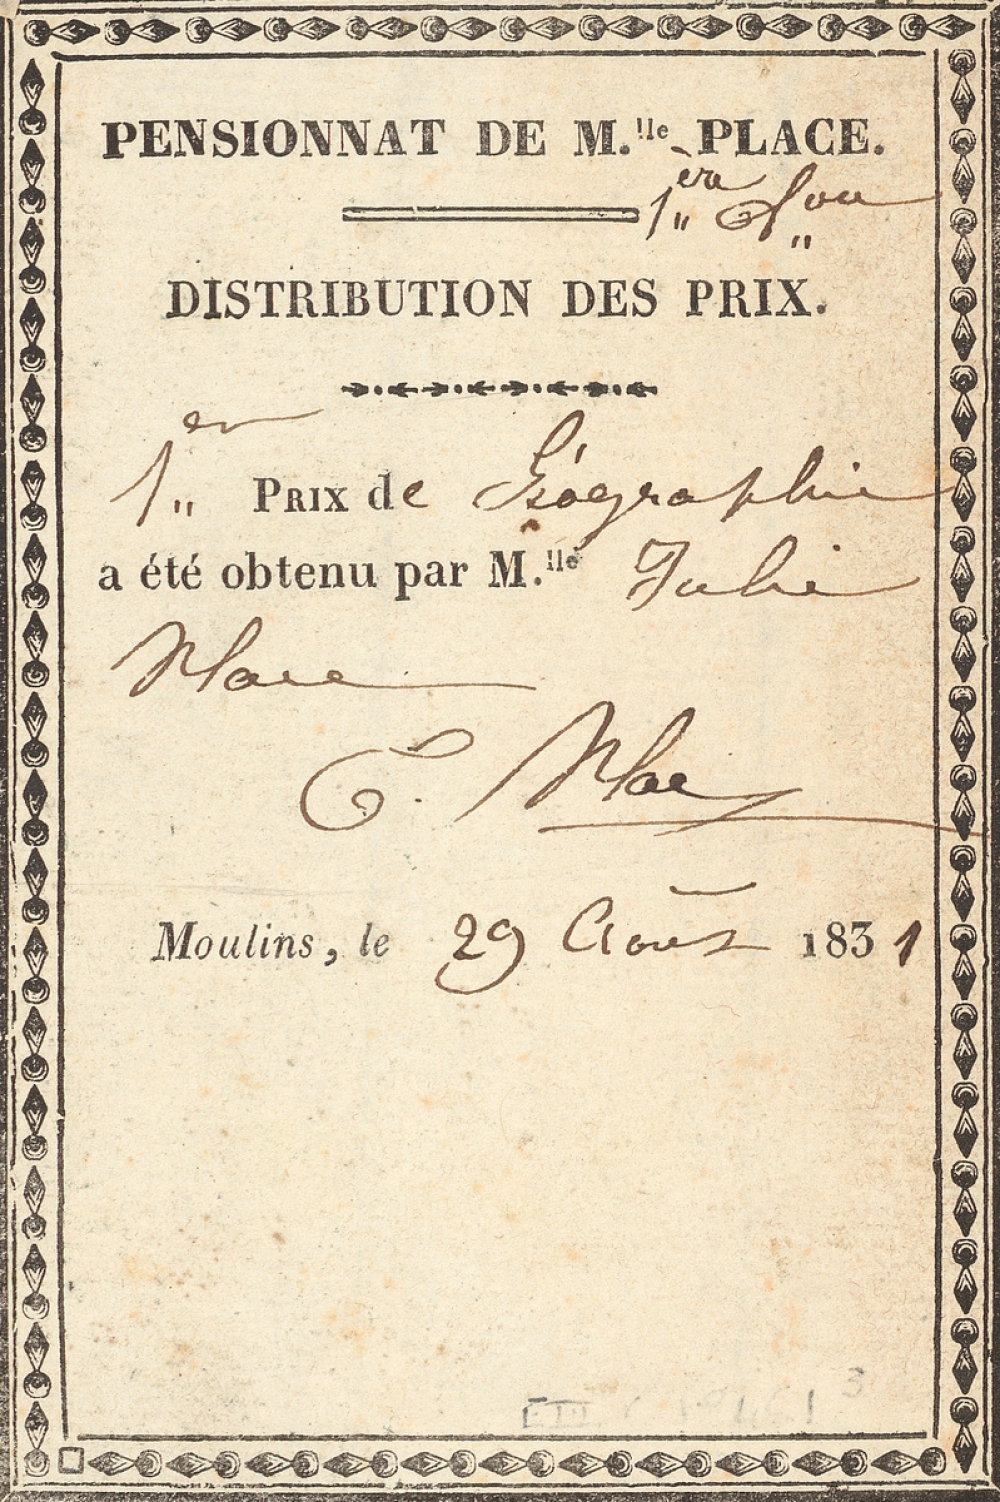 PENSIONNAT DE M.lle PLACE.
1ère
DISTRIBUTION DES PRIX.
1er PRIX de Géographie
a été obtenu par M.lle Julie
Place
C. Place
Moulins, le 29 Août 1831